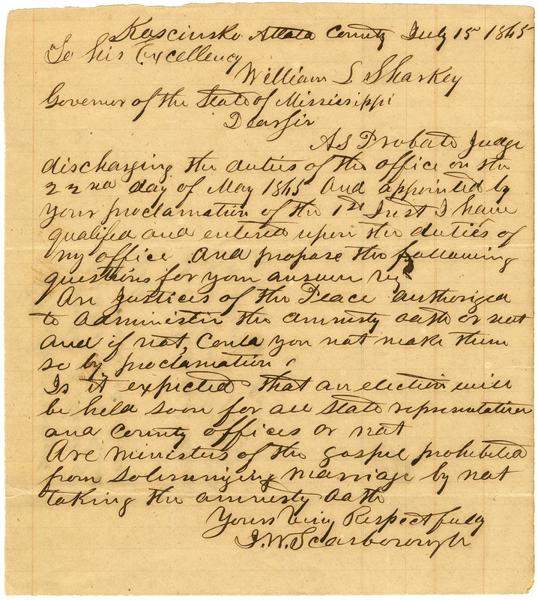 Koscinsko Attala County July 15th 1865
To his Excellency
William L Sharkey
Governor of the State of Mississippi
Dear Sir
As Probate Judge
discharging the duties of the office on the
22nd day of May 1865 and appointed by
your proclamation of the 1st Inst I have
qualified and entered upon the duties of
my office, and propose the following
questions for your answer
Are Justices of the Peace authorized
to administer the amnesty oath or not
and if not, could you not make them
so by proclamation
Is it expected that an election will
be held soon for all state representatives
and County offices or not
Are ministers of the gospel prohibited
from solemnizing marriage by not
taking the amnesty oath
Yours very Respectfully
J. W. Scarborough